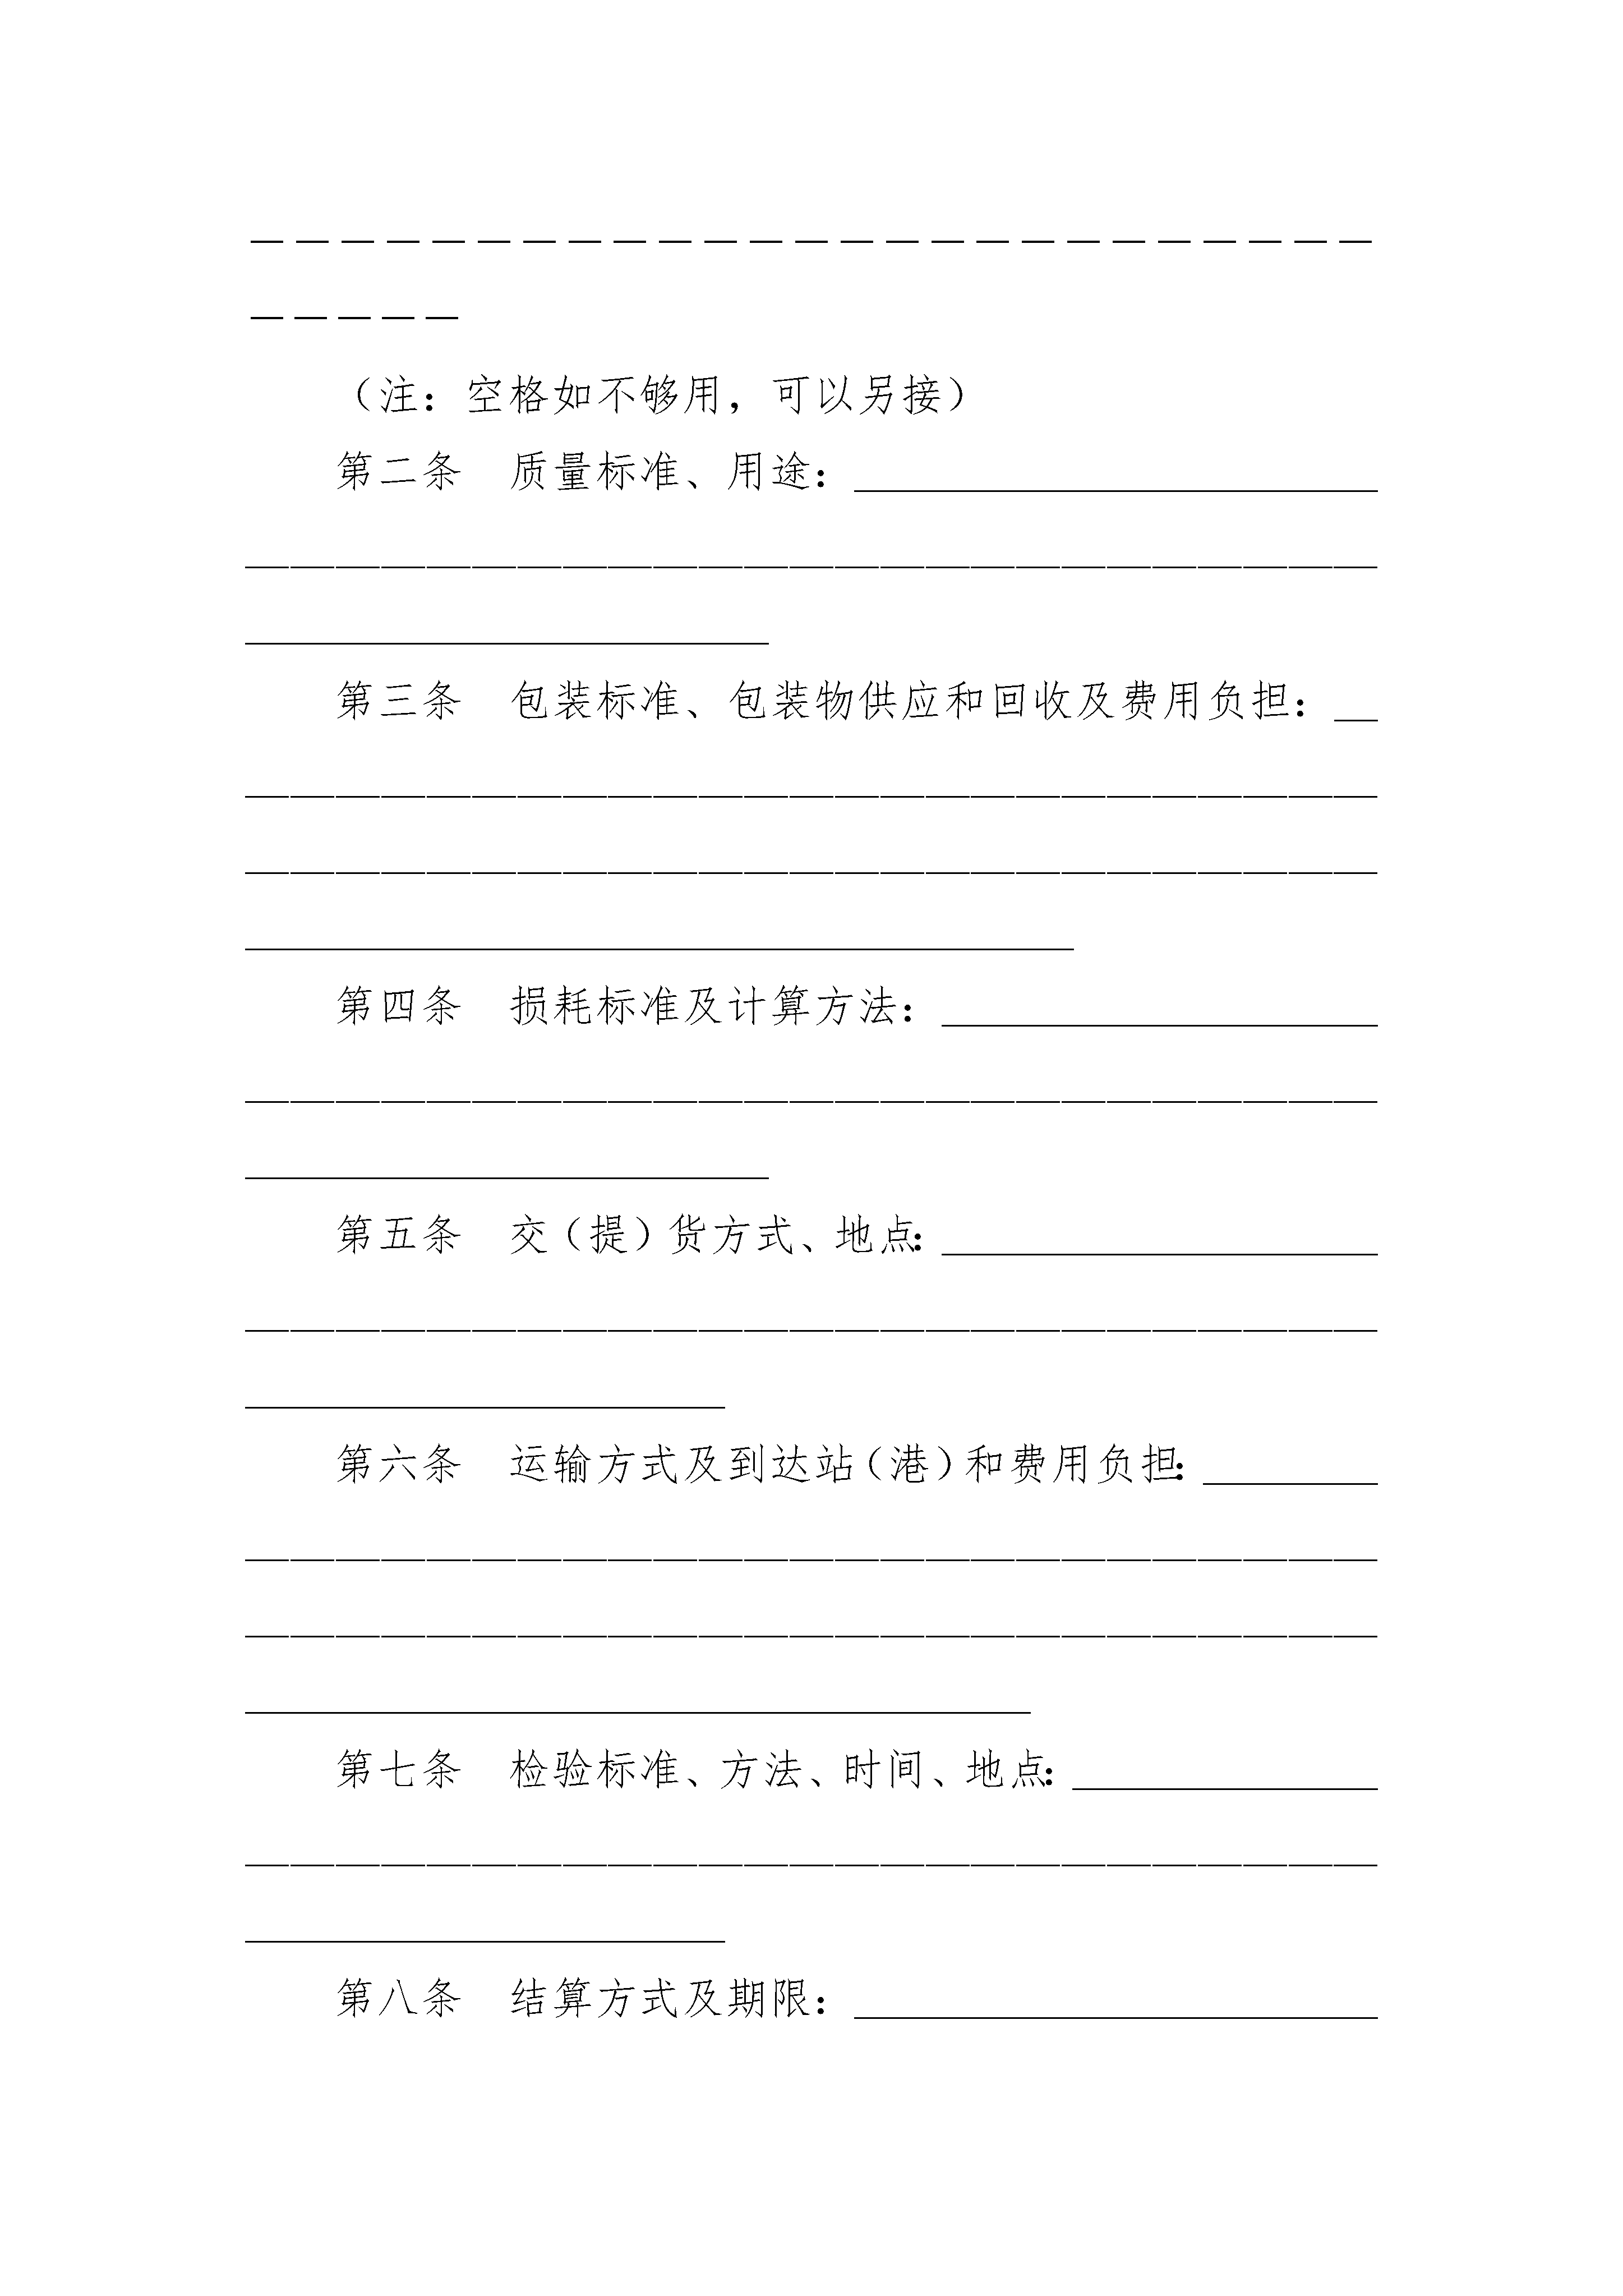 （注：空格如不够用，可以另接）
第二条　质量标准、用途：
第三条　包装标准、包装物供应和回收及费用负担：
第四条　损耗标准及计算方法：
第五条　交（提）货方式、地点：
第六条　运输方式及到达站（港）和费用负担：
第七条　检验标准、方法、时间、地点：
第八条　结算方式及期限：